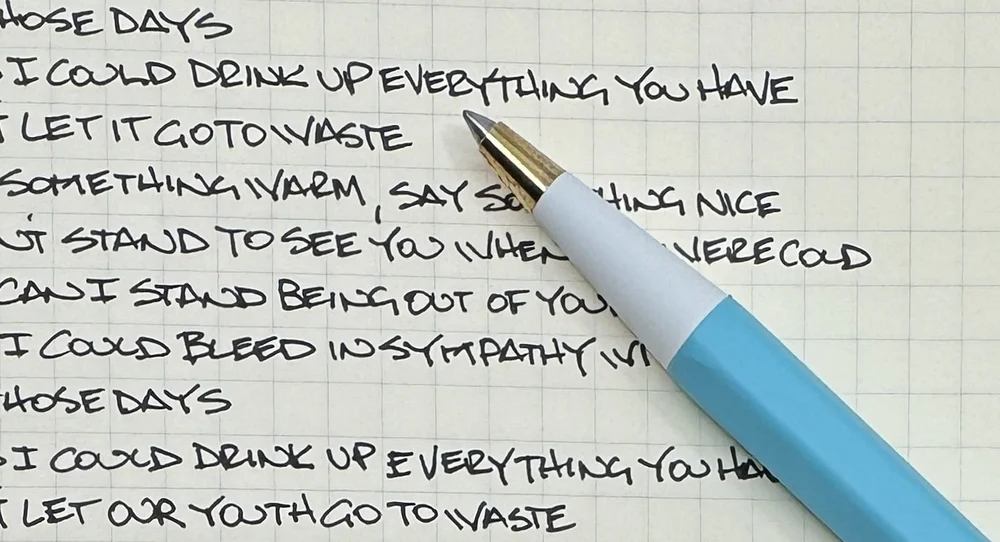 HOSE DAYS
I COULD DRINK UP EVERYTHING YOU HAVE
T LET IT GO TO WASTE
SOMETHING WARM, SAY SO HING NICE
'T STAND TO SEE YOU WHEN WERE COLD
CAN I STAND BEING OUT OF YOU
I COULD BLEED IN SYMPATHY WI
HOSE DAYS
I COULD DRINK UP EVERYTHING YOU HA
T LET OUR YOUTH GO TO WASTE